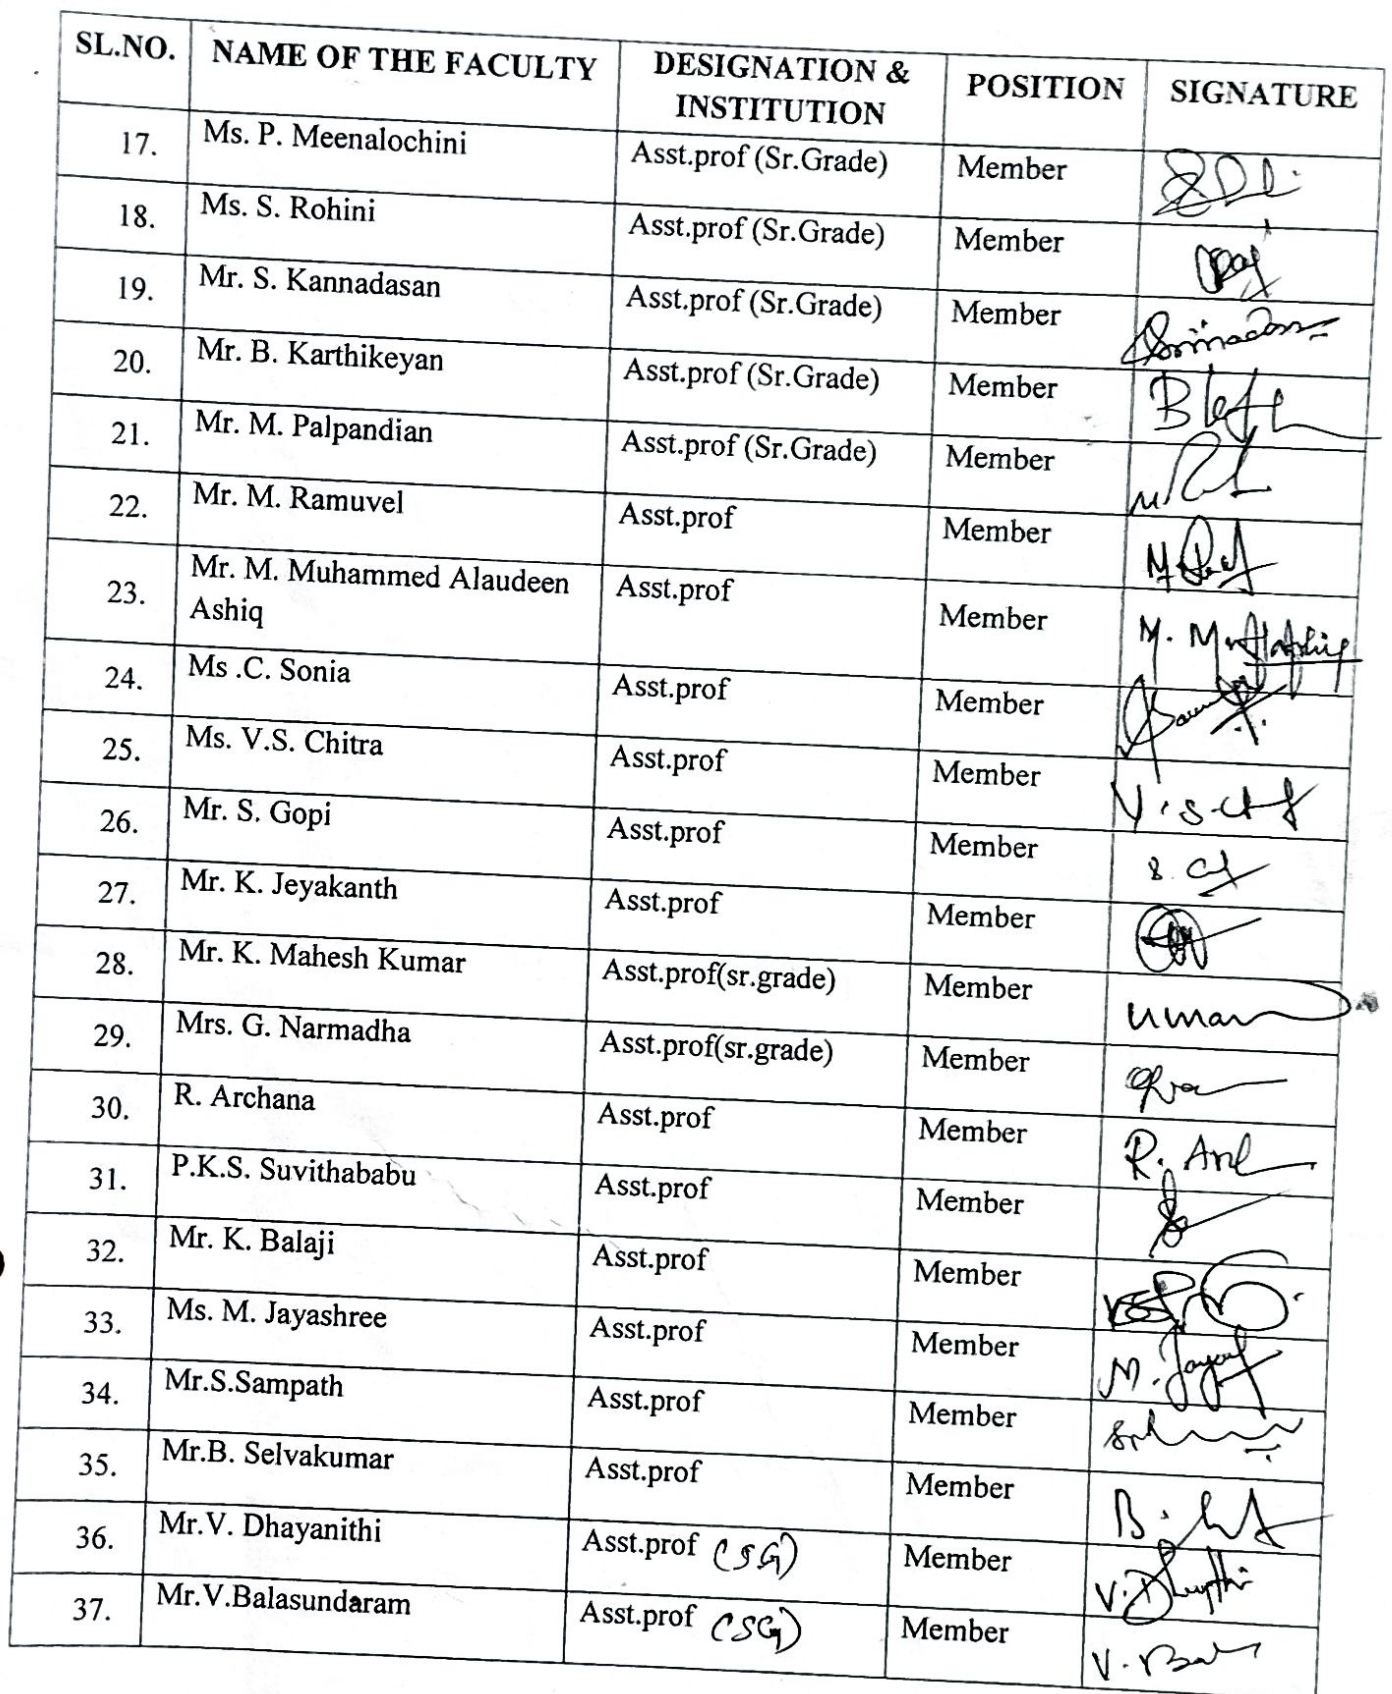 SL.NO. NAME OF THE FACULTY DESIGNATION & INSTITUTION POSITION SIGNATURE
17. Ms. P. Meenalochini Asst.prof (Sr.Grade) Member
18. Ms. S. Rohini Asst.prof (Sr.Grade) Member
19. Mr. S. Kannadasan Asst.prof (Sr.Grade) Member
20. Mr. B. Karthikeyan Asst.prof (Sr.Grade) Member
21. Mr. M. Palpandian Asst.prof (Sr.Grade) Member
22. Mr. M. Ramuvel Asst.prof Member
23. Mr. M. Muhammed Alaudeen Ashiq Asst.prof Member
24. Ms .C. Sonia Asst.prof Member
25. Ms. V.S. Chitra Asst.prof Member
26. Mr. S. Gopi Asst.prof Member
27. Mr. K. Jeyakanth Asst.prof Member
28. Mr. K. Mahesh Kumar Asst.prof(sr.grade) Member
29. Mrs. G. Narmadha Asst.prof(sr.grade) Member
30. R. Archana Asst.prof Member
31. P.K.S. Suvithababu Asst.prof Member
32. Mr. K. Balaji Asst.prof Member
33. Ms. M. Jayashree Asst.prof Member
34. Mr.S.Sampath Asst.prof Member
35. Mr.B. Selvakumar Asst.prof Member
36. Mr.V. Dhayanithi Asst.prof (SG) Member
37. Mr.V.Balasundaram Asst.prof (SG) Member